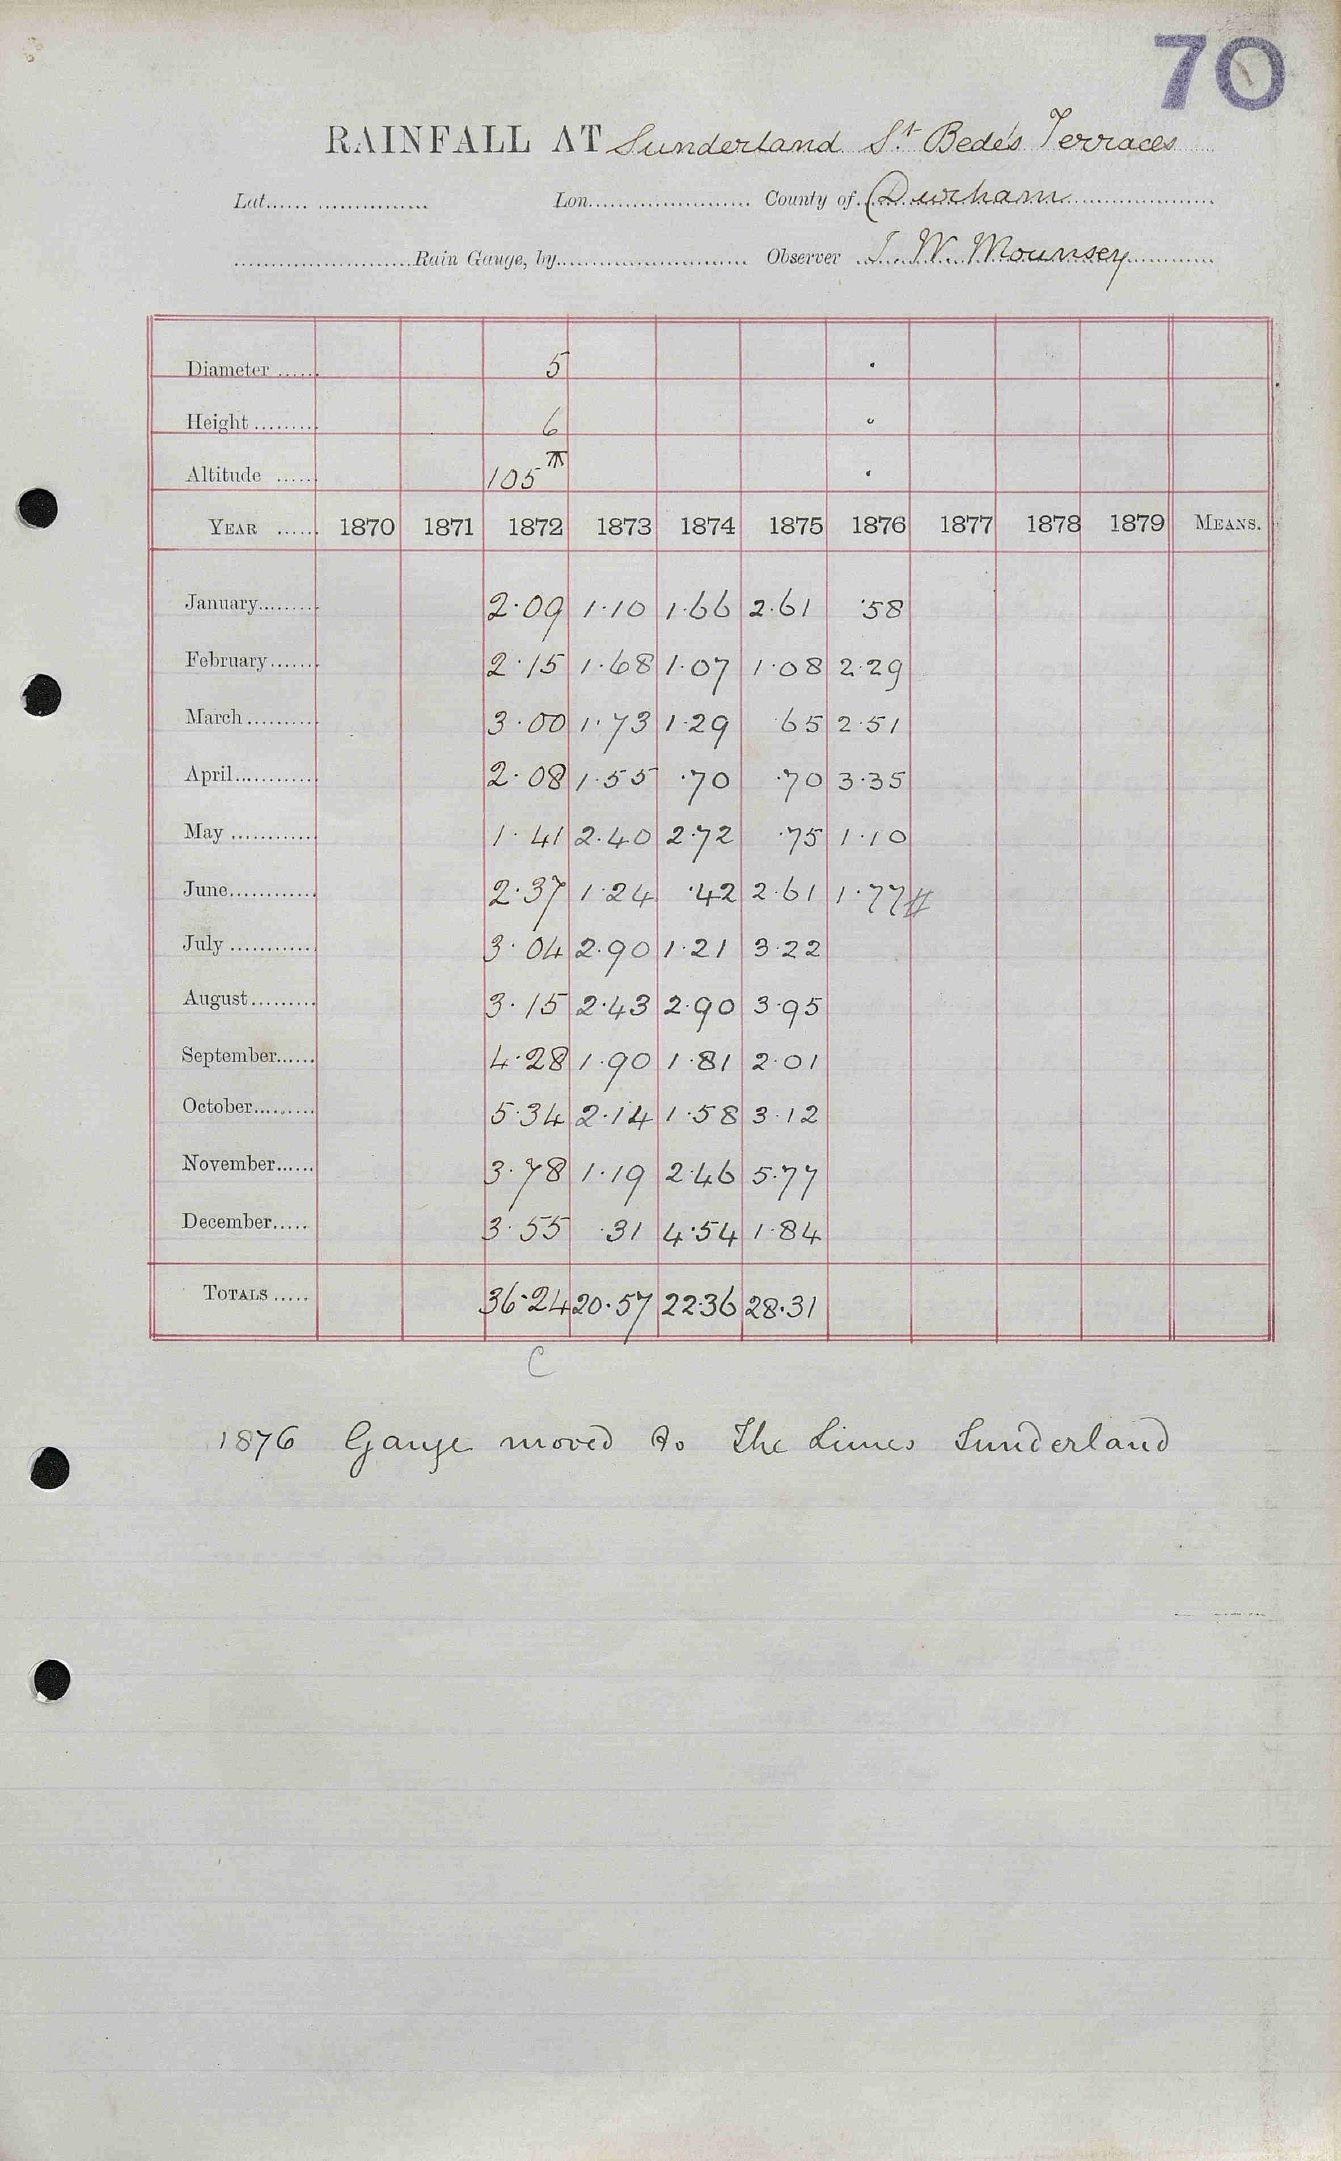 70
RAINFALL AT Sunderland St Bede's Terraces
Lat. Lon. County of Durham
Rain Gauge, by Observer J. W. Mounsey
Diameter 5
Height 6
Altitude 105
YEAR 1870 1871 1872 1873 1874 1875 1876 1877 1878 1879 MEANS.
January 2.09 1.10 1.66 2.61 .58
February 2.15 1.68 1.07 1.08 2.29
March 3.00 1.73 1.29 .65 2.51
April 2.08 1.55 .70 .70 3.35
May 1.41 2.40 2.72 .75 1.10
June 2.37 1.24 .42 2.61 1.77 #
July 3.04 2.90 1.21 3.22
August 3.15 2.43 2.90 3.95
September 4.28 1.90 1.81 2.01
October 5.34 2.14 1.58 3.12
November 3.78 1.19 2.46 5.77
December 3.55 .31 4.54 1.84
TOTALS 36.24 20.57 22.36 28.31
C
1876 Gauge moved to The Limes Sunderland